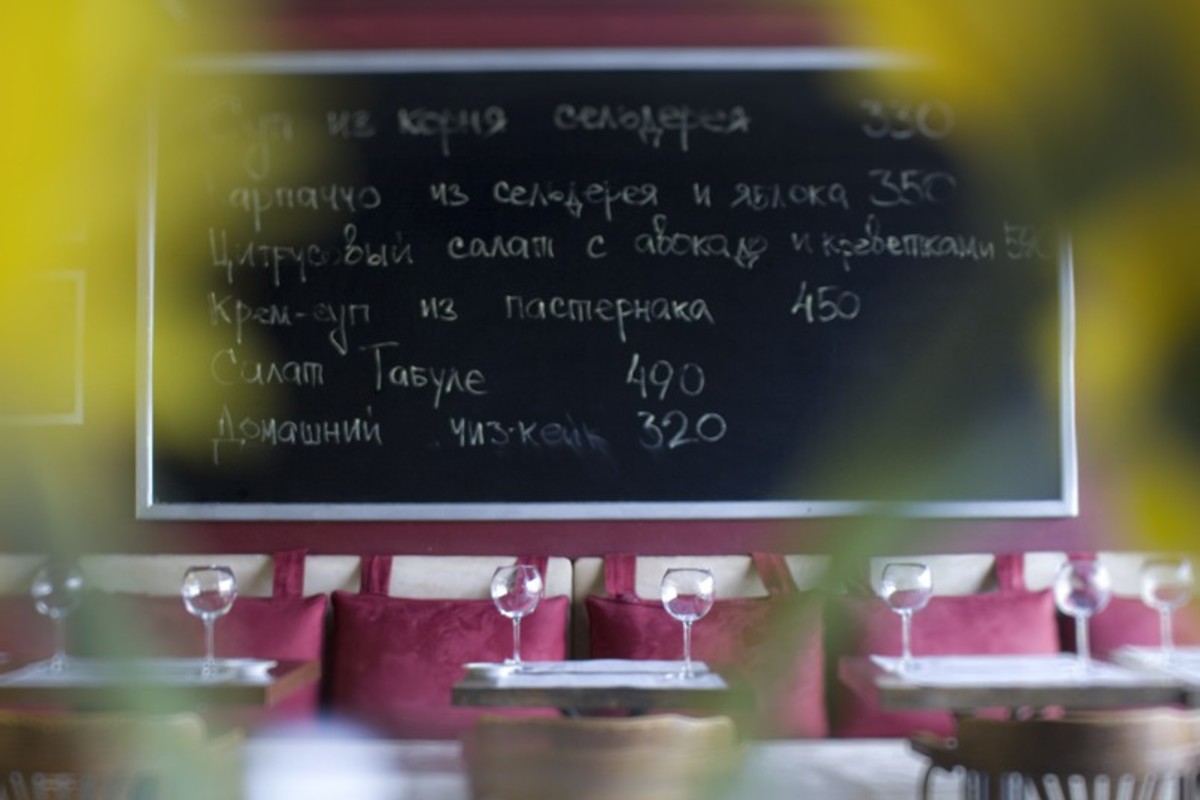 Суп из корня сельдерея 330
Карпаччо из сельдерея и яблока 350
Цитрусовый салат с авокадо и креветками
Крем-суп из пастернака 450
Салат Табуле 490
Домашний чиз-кейк 320